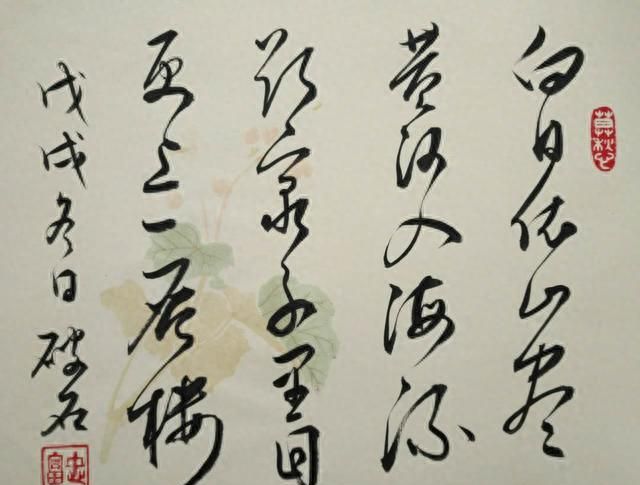 白日依山尽
黄河入海流
欲穷千里目
更上一层楼
戊戌冬日 破石